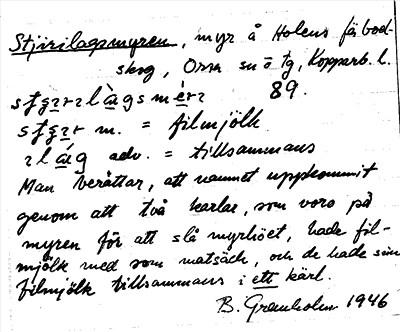 Stjirilagsmyren, myr å Holens fäbod-
skog, Orsa sn ö tg, Kopparb. l.
89.
m. = filmjölk
adv. = tillsammans
Man berättar, att namnet uppkommit
genom att två karlar, som voro på
myren för att slå myrhöet, hade fil-
mjölk med som matsäck, och de hade sin
filmjölk tillsammans i ett kärl.
B. Granholm 1946